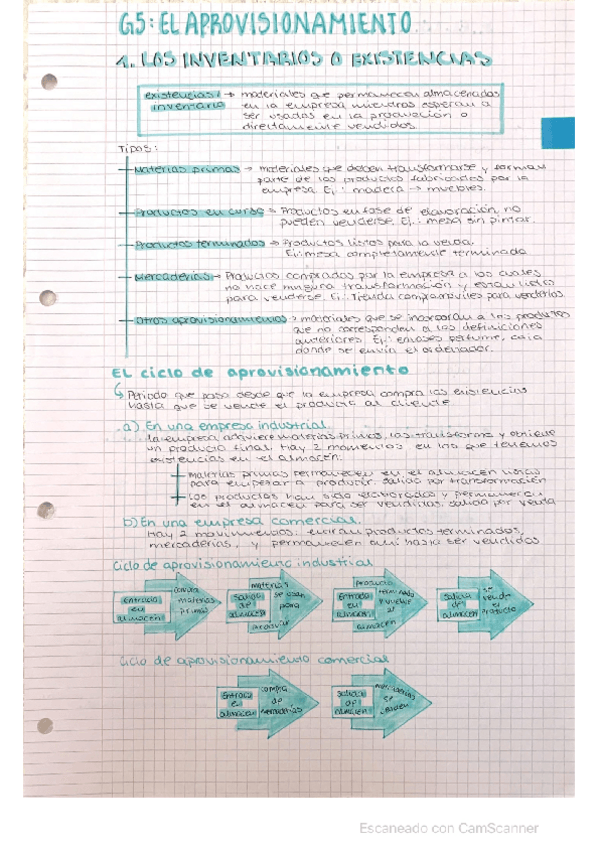 G5: EL APROVISIONAMIENTO
1. LOS INVENTARIOS O EXISTENCIAS
existencias/ → materiales que permanecen almacenados
inventario en la empresa mientras esperan a
ser usadas en la producción o
directamente vendidos.
Tipos:
Materias primas → materiales que deben transformarse y forman
parte de los productos fabricados por la
empresa Ej.: madera → muebles.
Productos en curso → Productos en fase de elaboración, no
pueden venderse. Ej.: mesa sin pintar.
Productos terminados → Productos listos para la venta.
Ej.: mesa completamente terminada
Mercaderías → Productos comprados por la empresa a los cuales
no hace ninguna transformación y están listos
para venderse. Ej.: Tienda compra móviles para venderlos.
Otros aprovisionamientos → materiales que se incorporan a los productos
que no corresponden a las definiciones
anteriores. Ej.: envases perfume, caja
donde se envía el ordenador.
El ciclo de aprovisionamiento
↳ Periodo que pasa desde que la empresa compra las existencias
hasta que se vende el producto al cliente
a) En una empresa industrial
la empresa adquiere materias primas, las transforma y obtiene
un producto final. Hay 2 momentos en los que tenemos
existencias en el almacén:
materias primas permanecen en el almacén listas
para empezar a producir. salida por transformación
los productos han sido elaborados y permanecen
en el almacén para ser vendidos. salida por venta
b) En una empresa comercial.
Hay 2 movimientos: entran productos terminados,
mercaderías, y permanecen ahí hasta ser vendidos
Ciclo de aprovisionamiento industrial
Entrada en almacén compra materias primas
salida de almacén materias se usan para producir
Entrada en almacén producto terminado vuelve al almacén
salida de almacén se vende el producto
Ciclo de aprovisionamiento comercial
Entrada en almacén compra de mercaderías
salida de almacén mercaderías se venden
Escaneado con CamScanner